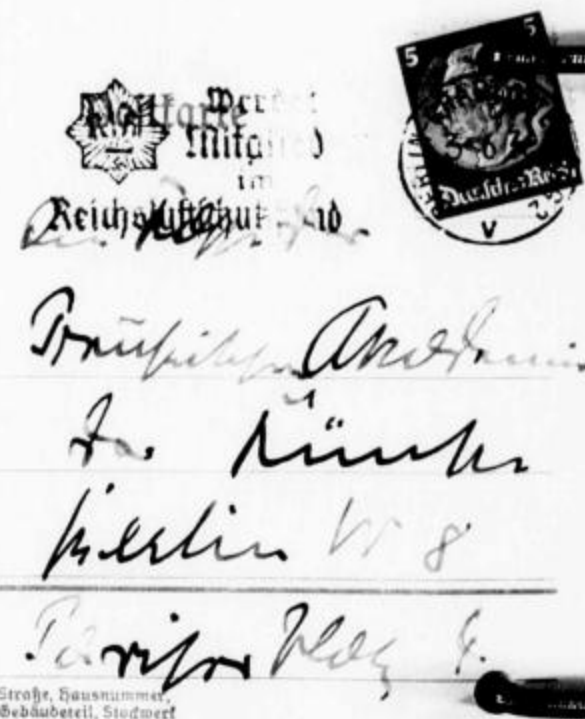 Postkarte
Werdet
Mitglied
im
Reichsluftschutzbund
5 5
Deutsches Reich
BERLIN
An
Preußische Akademie
der Künste
Berlin W 8
Pariser Platz 4.
Straße, Hausnummer,
Gebäudeteil, Stockwerk